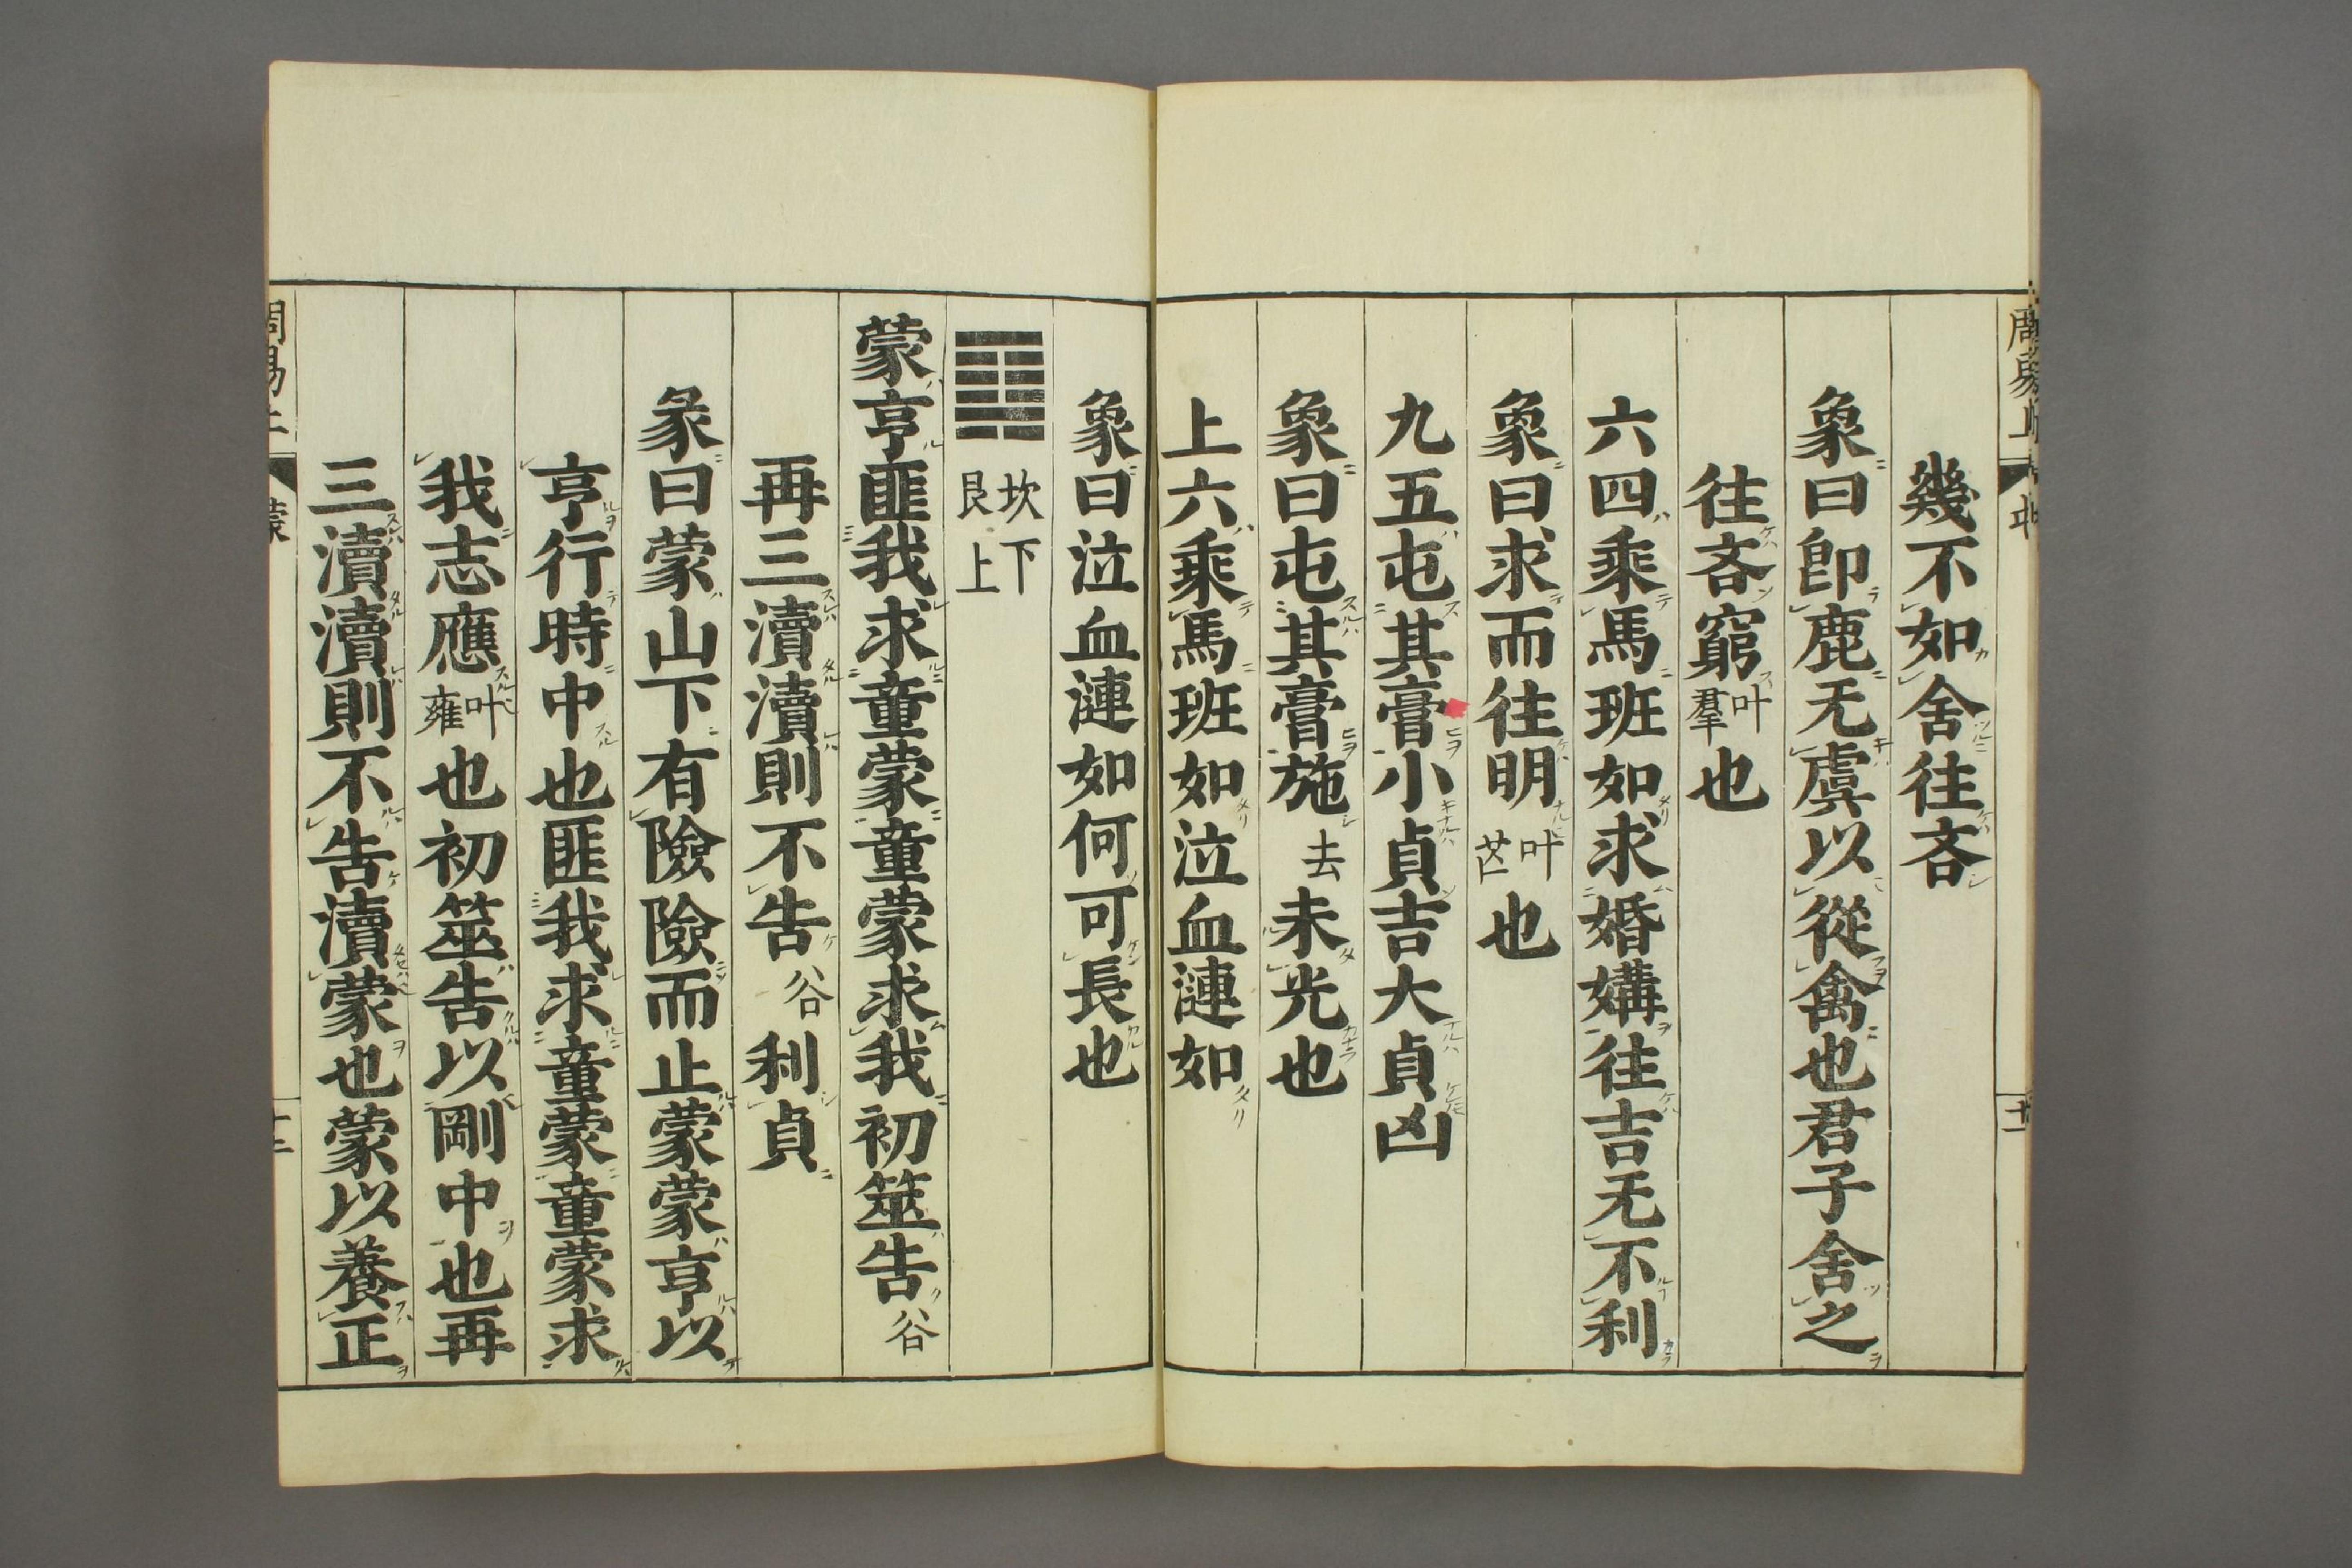 幾不如舍往吝
象曰卽鹿无虞以從禽也君子舍之
往吝窮叶羣也
六四乘馬班如求婚媾往吉无不利
象曰求而往明叶芒也
九五屯其膏小貞吉大貞凶
象曰屯其膏施去未光也
上六乘馬班如泣血漣如
象曰泣血漣如何可長也
䷃坎下艮上
蒙亨匪我求童蒙童蒙求我初筮告谷
再三瀆瀆則不告谷利貞
彖曰蒙山下有險險而止蒙蒙亨以
亨行時中也匪我求童蒙童蒙求
我志應叶雍也初筮告以剛中也再
三瀆瀆則不告瀆蒙也蒙以養正
周易上 蒙 十二